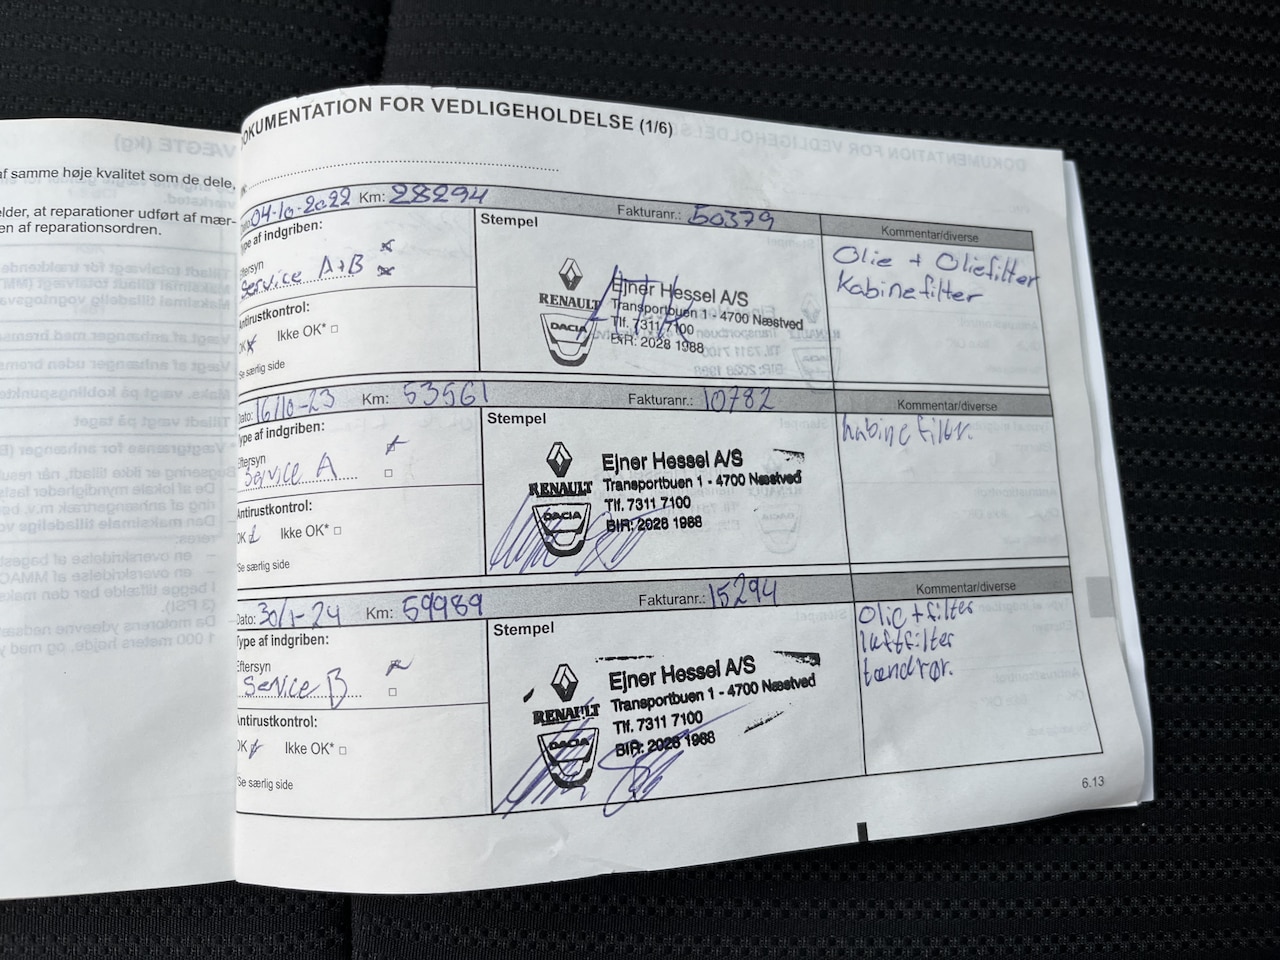 af samme høje kvalitet som de dele,
elder, at reparationer udført af mær-
en af reparationsordren.
DOKUMENTATION FOR VEDLIGEHOLDELSE (1/6)
Dato: 04-10-2022 Km: 28294 Fakturanr.: 50379
Type af indgriben:
Eftersyn
Service A+B
Antirustkontrol:
OK Ikke OK*
*Se særlig side
Stempel
RENAULT
DACIA
Ejner Hessel A/S
Transportbuen 1 - 4700 Næstved
Tlf. 7311 7100
BIR: 2028 1988
Kommentar/diverse
Olie + Oliefilter
Kabinefilter
Dato: 16/10-23 Km: 53561 Fakturanr.: 10782
Type af indgriben:
Eftersyn
Service A
Antirustkontrol:
OK Ikke OK*
*Se særlig side
Stempel
RENAULT
DACIA
Ejner Hessel A/S
Transportbuen 1 - 4700 Næstved
Tlf. 7311 7100
BIR: 2028 1988
Kommentar/diverse
kabine filter.
Dato: 30/1-24 Km: 59989 Fakturanr.: 15294
Type af indgriben:
Eftersyn
Service B
Antirustkontrol:
OK Ikke OK*
*Se særlig side
Stempel
RENAULT
DACIA
Ejner Hessel A/S
Transportbuen 1 - 4700 Næstved
Tlf. 7311 7100
BIR: 2028 1988
Kommentar/diverse
Olie + filter
luftfilter
tændrør.
6.13